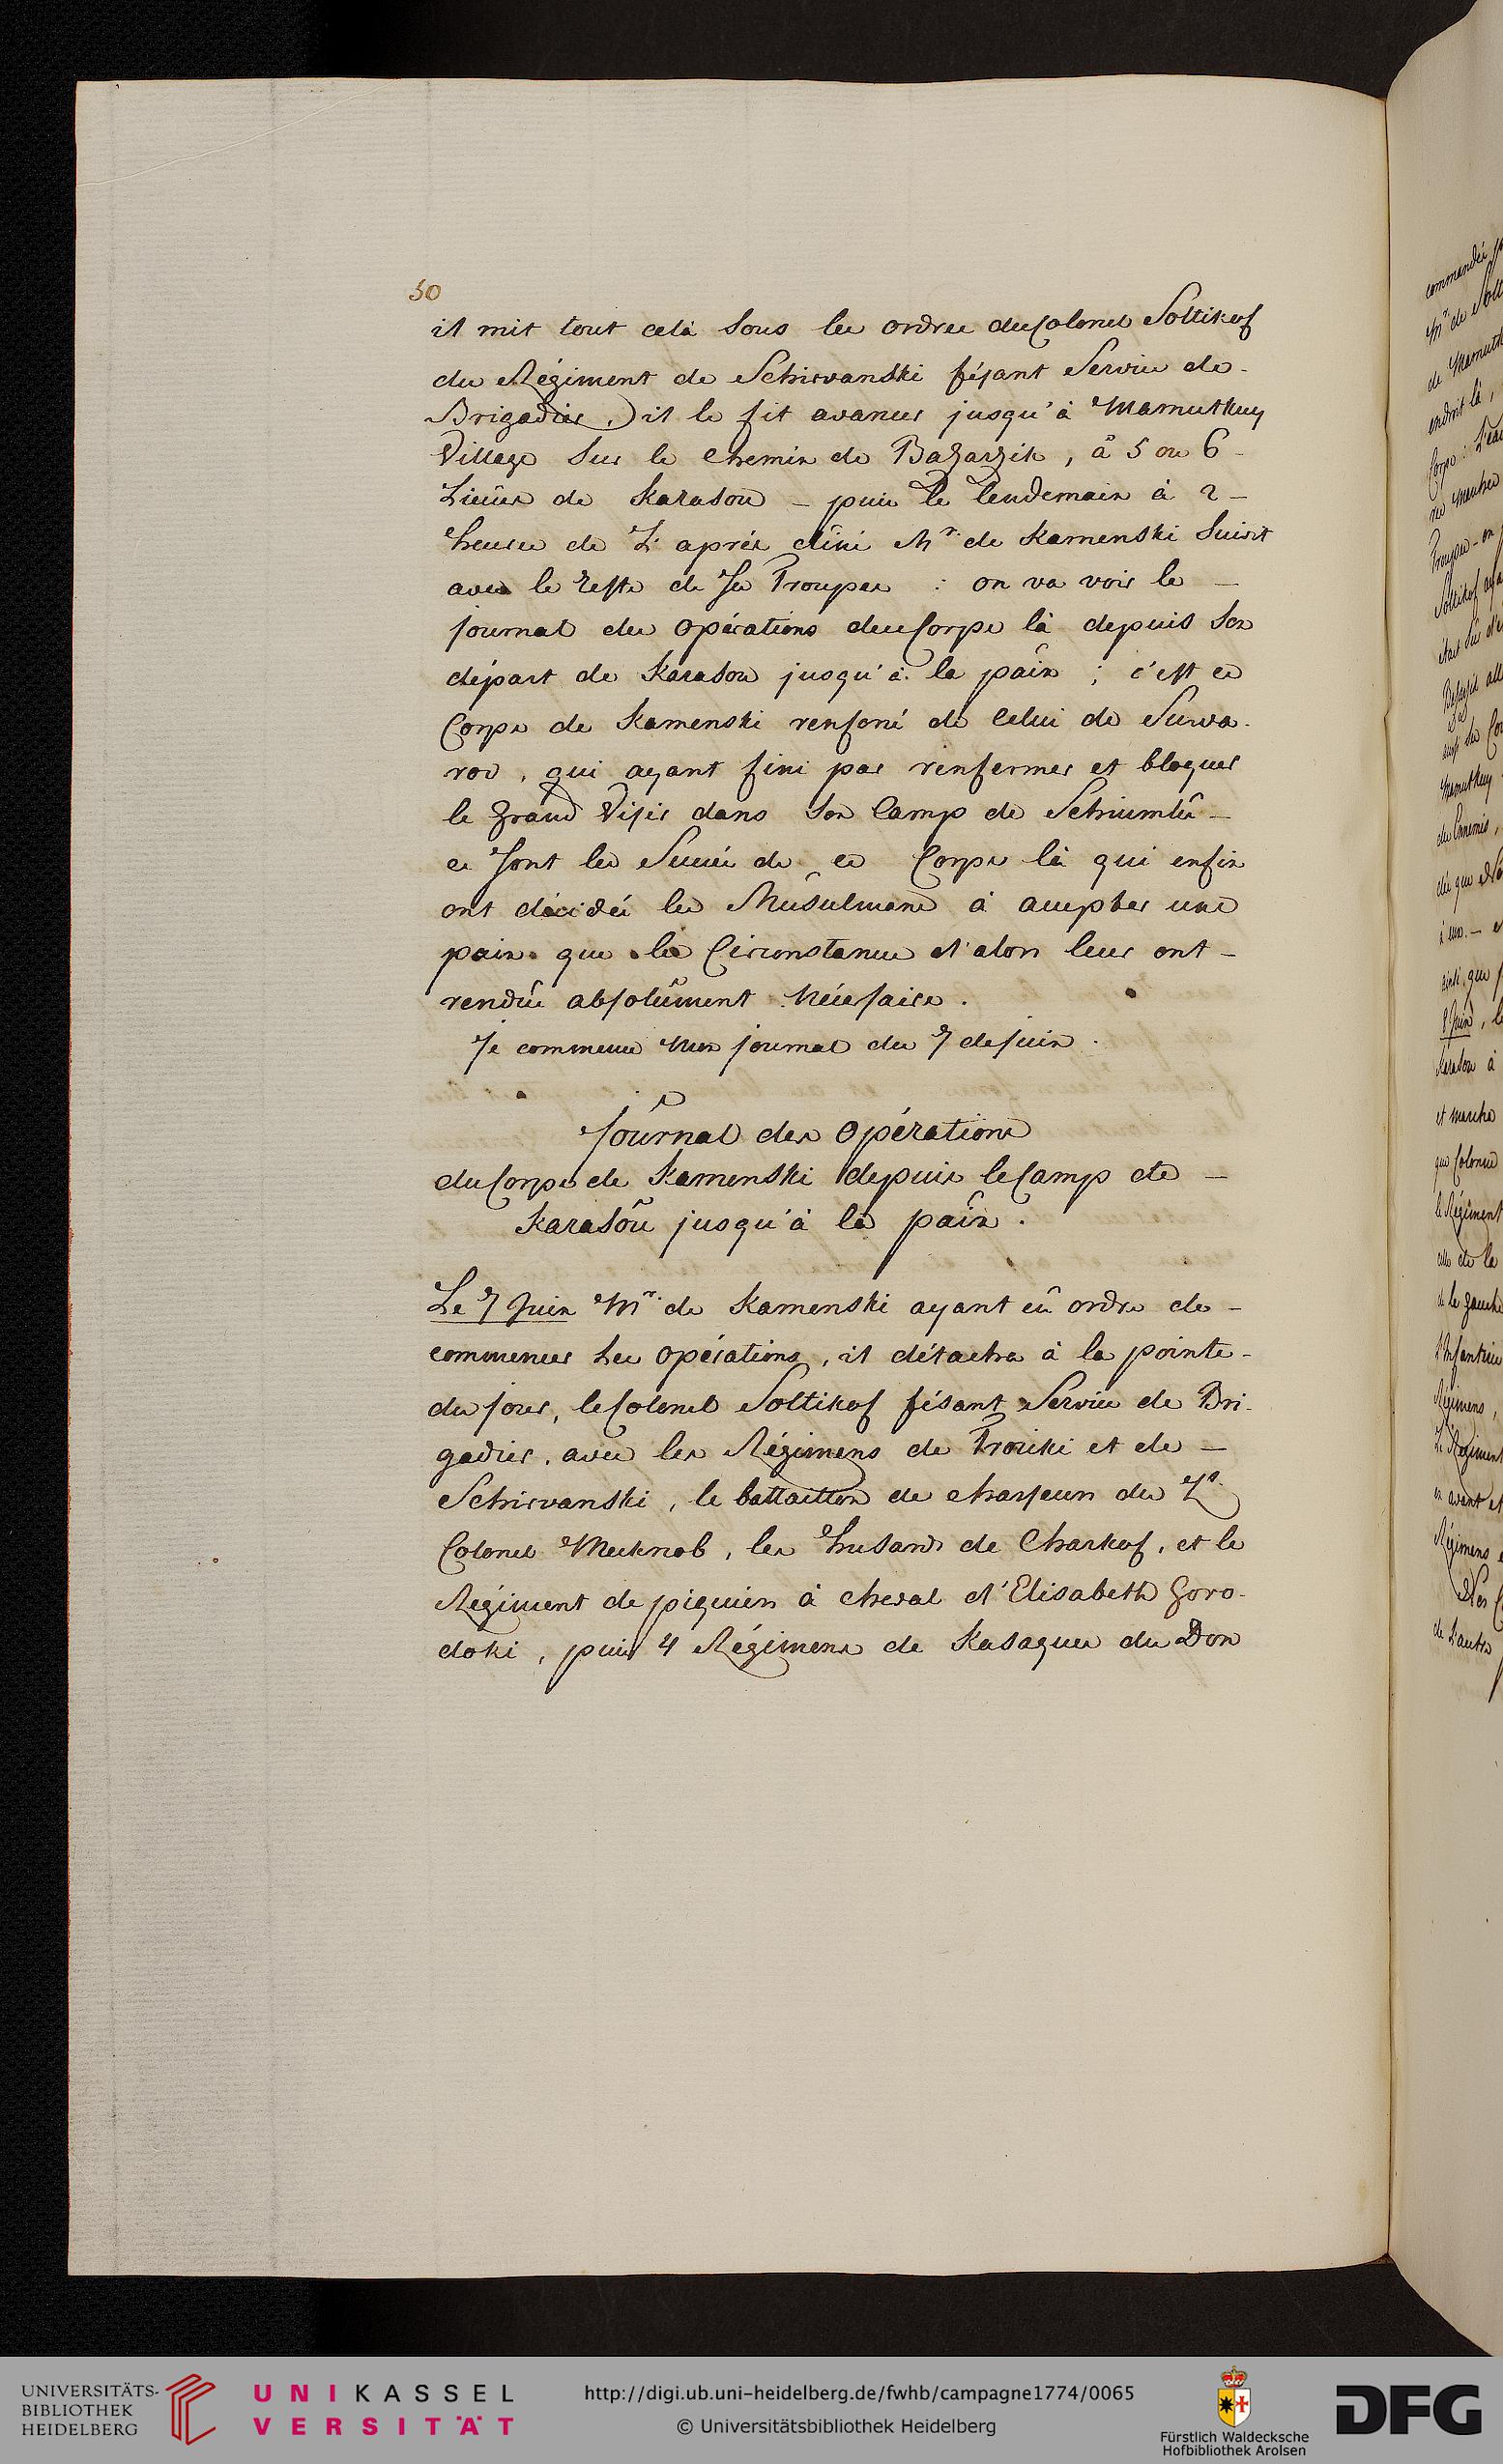 50
il mit tout celà sous les ordres du Colonel Soltikof
du Régiment de Schirvanski fésant Service de
Brigadier,) il le fit avancer jusqu'à Mamutkuy
Village sur le chemin de Bazarzik, à 5 ou 6
Lieües de Karasou – puis le lendemain à 2 –
heures de L'après diné Mr. de Kamenski suivit
avec le reste de ses Troupes : on va voir le –
journal des opérations du Corps là depuis son
départ de Karasou jusqu'à la paix ; c'est ce
Corps de Kamenski renforcé de celui de Suwa-
row, qui ayant fini par renfermer et bloquer
le grand Visir dans son Camp de Schiumlû –
ce sont les Succés de ce Corps là qui enfin
ont décidés les Musulmans à accepter une
paix que les Circonstances d'alors leur ont –
rendüe absolûment nécessaire.
Je commence mon journal du 7 de Juin.
Journal des Opérations
du Corps de Kamenski depuis le Camp de –
Karasou jusqu'à la paix.
Le 7 Juin Mr. de Kamenski ayant eû ordre de –
commencer ses opérations, il détacha à la pointe –
du jour, le Colonel Soltikof fésant Service de Bri-
gadier, avec les Régimens de Troiki et de –
Schirvanski, le battaillon de chasseurs du Lt.
Colonel Mecknob, les husards de Charkof, et le
Régiment de piquiers à cheval d'Elisabeth Goro-
doki, puis 4 Régimens de Kasaques du Don
commandés
Mr. de Solt
de Mamutk
endroit là,
Corps :
Troupes – on
Soltikof
Mamutkuy
8 Juin,
Karasou à
et marcha
que Colonne
le Régiment
de la
de la gauche
d'Infanterie
Régimens,
Le Régiment
en avant et
Régimens
UNIVERSITÄTS-
BIBLIOTHEK
HEIDELBERG
UNIKASSEL
VERSITÄT
http://digi.ub.uni-heidelberg.de/fwhb/campagne1774/0065
© Universitätsbibliothek Heidelberg
Fürstlich Waldecksche
Hofbibliothek Arolsen
DFG